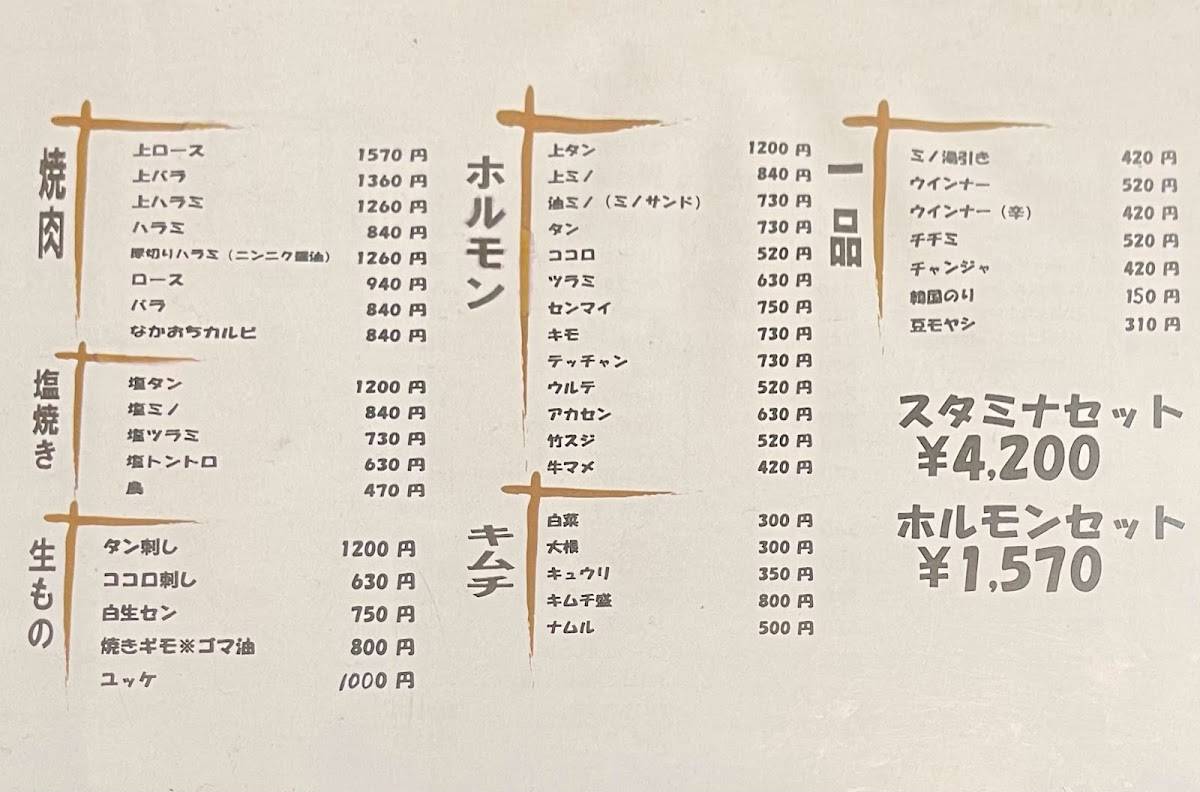 焼肉
上ロース 1570 円
上バラ 1360 円
上ハラミ 1260 円
ハラミ 840 円
厚切りハラミ（ニンニク醤油） 1260 円
ロース 940 円
バラ 840 円
なかおちカルビ 840 円
塩焼き
塩タン 1200 円
塩ミノ 840 円
塩ツラミ 730 円
塩トントロ 630 円
鳥 470 円
生もの
タン刺し 1200 円
ココロ刺し 630 円
白生セン 750 円
焼きギモ※ゴマ油 800 円
ユッケ 1000 円
ホルモン
上タン 1200 円
上ミノ 840 円
油ミノ（ミノサンド） 730 円
タン 730 円
ココロ 520 円
ツラミ 630 円
センマイ 750 円
キモ 730 円
テッチャン 730 円
ウルテ 520 円
アカセン 630 円
竹スジ 520 円
牛マメ 420 円
キムチ
白菜 300 円
大根 300 円
キュウリ 350 円
キムチ盛 800 円
ナムル 500 円
一品
ミノ湯引き 420 円
ウインナー 520 円
ウインナー（辛） 420 円
チヂミ 520 円
チャンジャ 420 円
韓国のり 150 円
豆モヤシ 310 円
スタミナセット
¥4,200
ホルモンセット
¥1,570